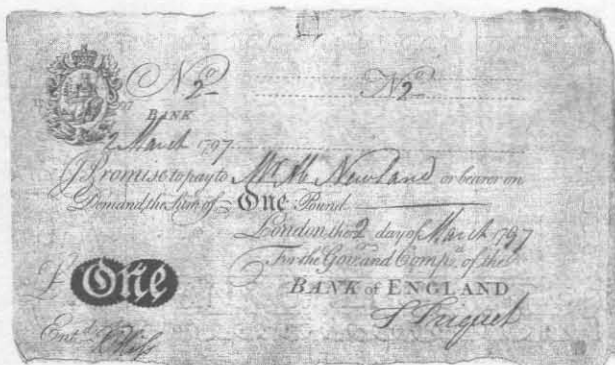 Nº 2 Nº 2
BANK
2 March 1797
I Promise to pay to Mr Ab Newland or bearer on
Demand the Sum of One Pound
London the 2 day of March 1797
For the Govr and Compa of the
£ One BANK of ENGLAND
Entd